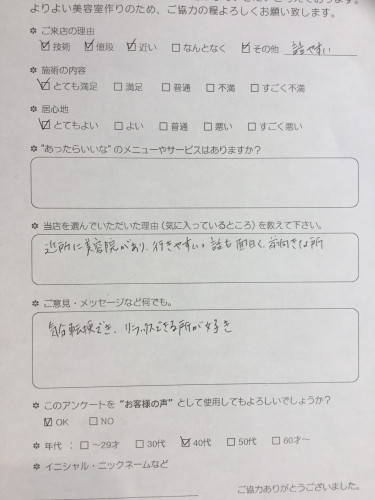 よりよい美容室作りのため、ご協力の程よろしくお願い致します。
✲ ご来店の理由
☑技術 ☑値段 ☑近い □なんとなく ☑その他 話やすい
✲ 施術の内容
☑とても満足 □満足 □普通 □不満 □すごく不満
✲ 居心地
☑とてもよい □よい □普通 □悪い □すごく悪い
✲ "あったらいいな"のメニューやサービスはありますか？
✲ 当店を選んでいただいた理由（気に入っているところ）を教えて下さい。
近所に美容院があり、行きやすい。話も面白く、前向きな所
✲ ご意見・メッセージなど何でも。
気分転換でき、リラックスできる所が好き
✲ このアンケートを "お客様の声" として使用してもよろしいでしょうか？
☑OK □NO
✲ 年代 ： □〜29才 □30代 ☑40代 □50代 □60才〜
✲ イニシャル・ニックネームなど
ご協力ありがとうございました。